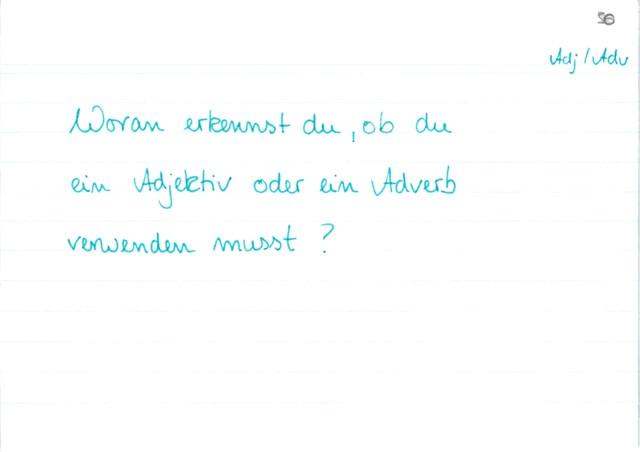 56
Adj / Adv
Woran erkennst du, ob du
ein Adjektiv oder ein Adverb
verwenden musst ?